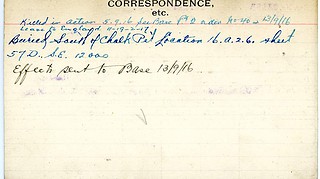 CORRESPONDENCE,
etc.
Killed in action 5.9.16 Base 13/9/16
to England
Buried South of Chalk Pit Location 16.a.2.6. sheet
57D. S.E. 12000
Effects sent to Base 13/9/16